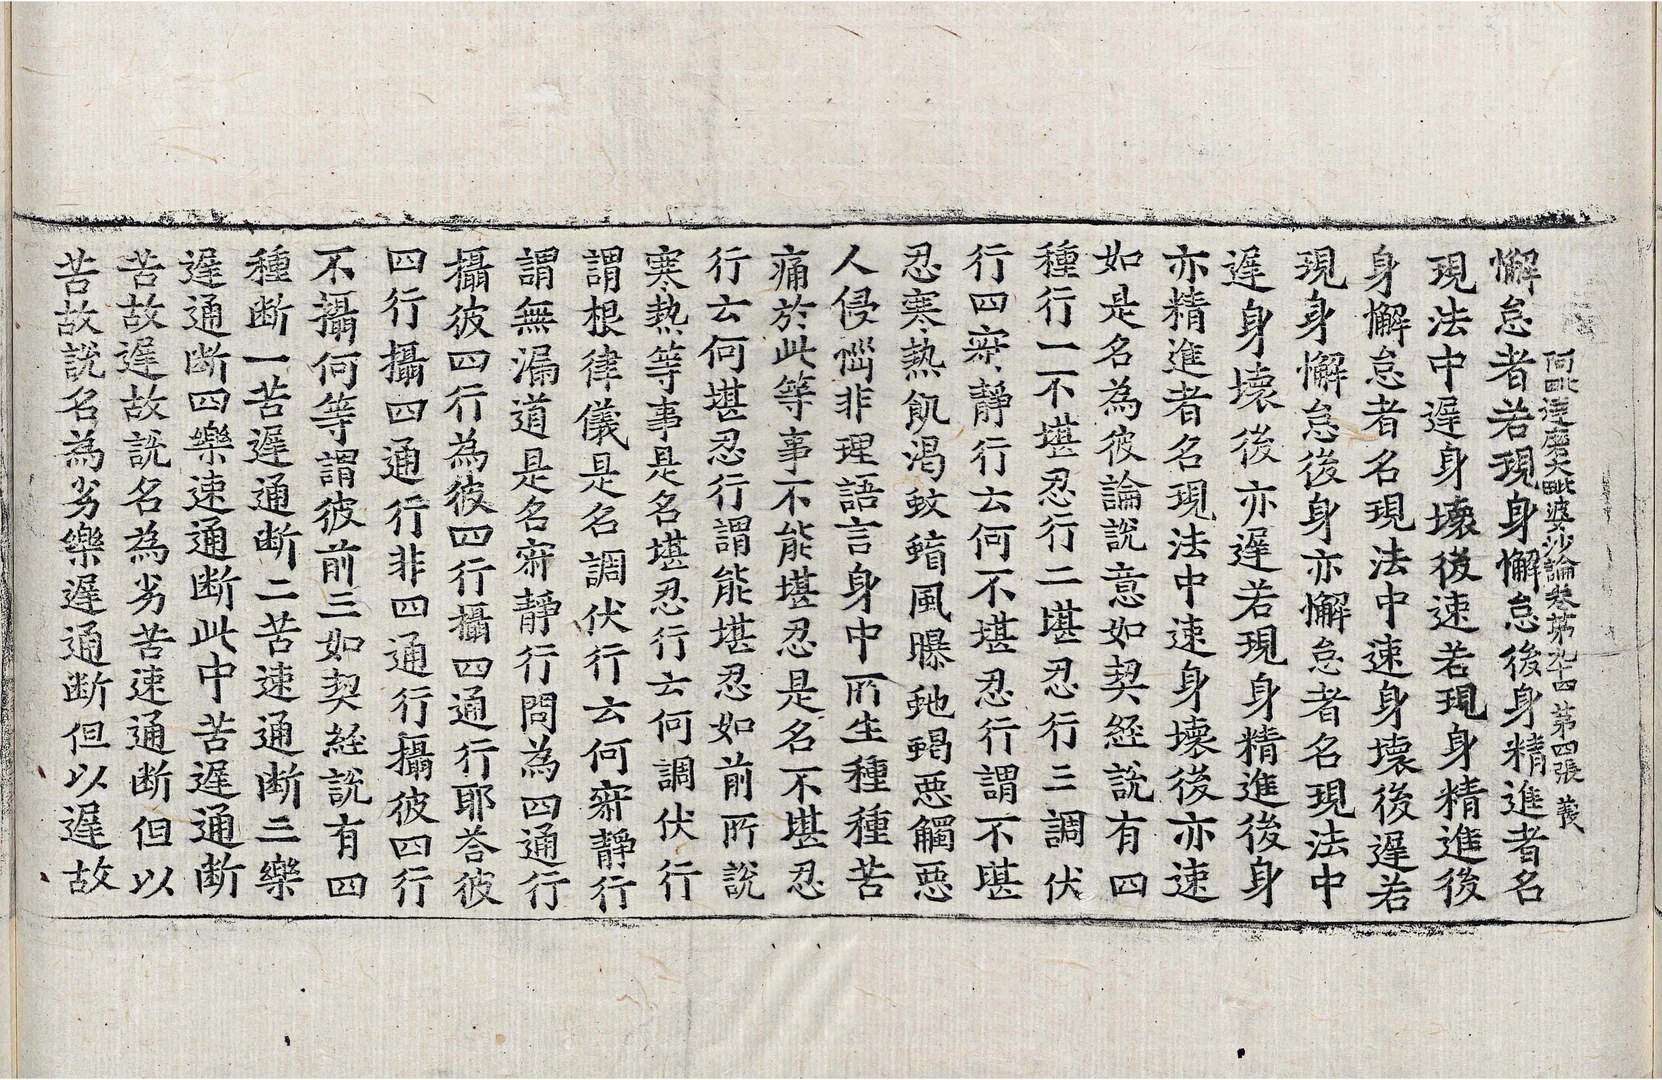 阿毗達磨大毗婆沙論卷第九十四 第四張 義
懈怠者若現身懈怠後身精進者名
現法中遲身壞後速若現身精進後
身懈怠者名現法中速身壞後遲若
現身懈怠後身亦懈怠者名現法中
遲身壞後亦遲若現身精進後身
亦精進者名現法中速身壞後亦速
如是名為彼論說意如契經說有四
種行一不堪忍行二堪忍行三調伏
行四寂靜行云何不堪忍行謂不堪
忍寒熱飢渴蚊䖟風曝虵蝎惡觸惡
人侵惱非理語言身中所生種種苦
痛於此等事不能堪忍是名不堪忍
行云何堪忍行謂能堪忍如前所說
寒熱等事是名堪忍行云何調伏行
謂根律儀是名調伏行云何寂靜行
謂無漏道是名寂靜行問為四通行
攝彼四行為彼四行攝四通行耶荅彼
四行攝四通行非四通行攝彼四行
不攝何等謂彼前三如契經說有四
種斷一苦遲通斷二苦速通斷三樂
遲通斷四樂速通斷此中苦遲通斷
苦故遲故說名為劣苦速通斷但以
苦故說名為劣樂遲通斷但以遲故